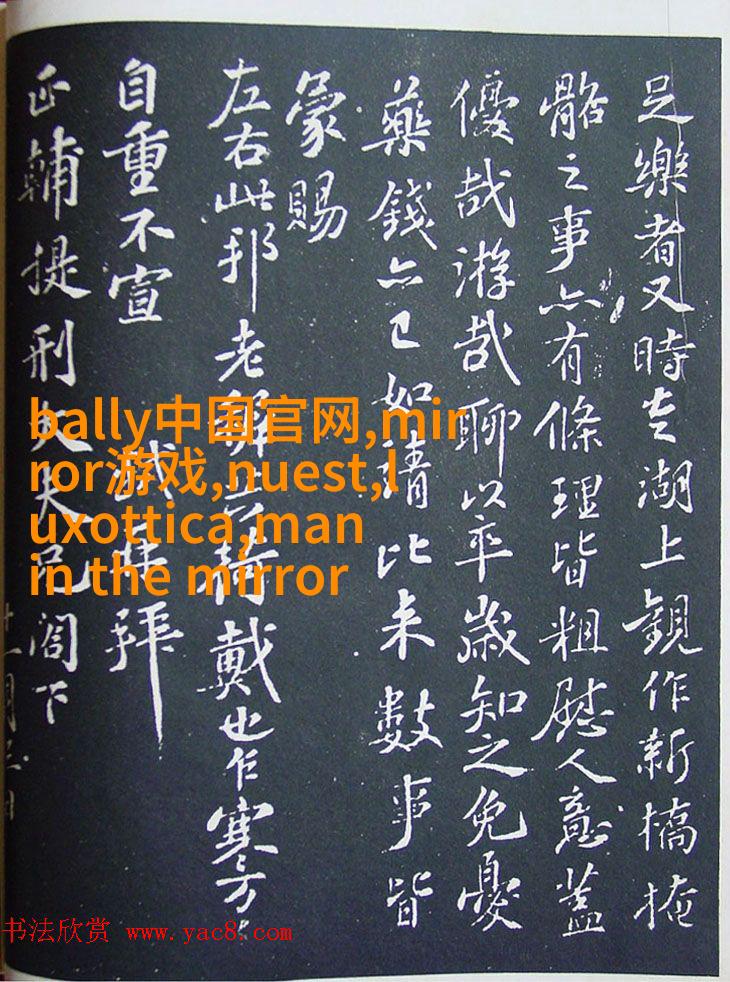 足樂者又時走湖上觀作新橋掩
骼之事亦有條理皆粗慰人意蓋
優哉游哉聊以卒歲知之免憂
藥錢亦已如請比来數事皆
蒙賜
左右此邦老稺共荷戴也乍寒万〻
自重不宣 軾再拜
正輔提刑大夫兄閣下
十一月三日
bally中国官网,mir
ror游戏,nuest,l
uxottica,man
in the mirror
书法欣赏 www.yac8.com